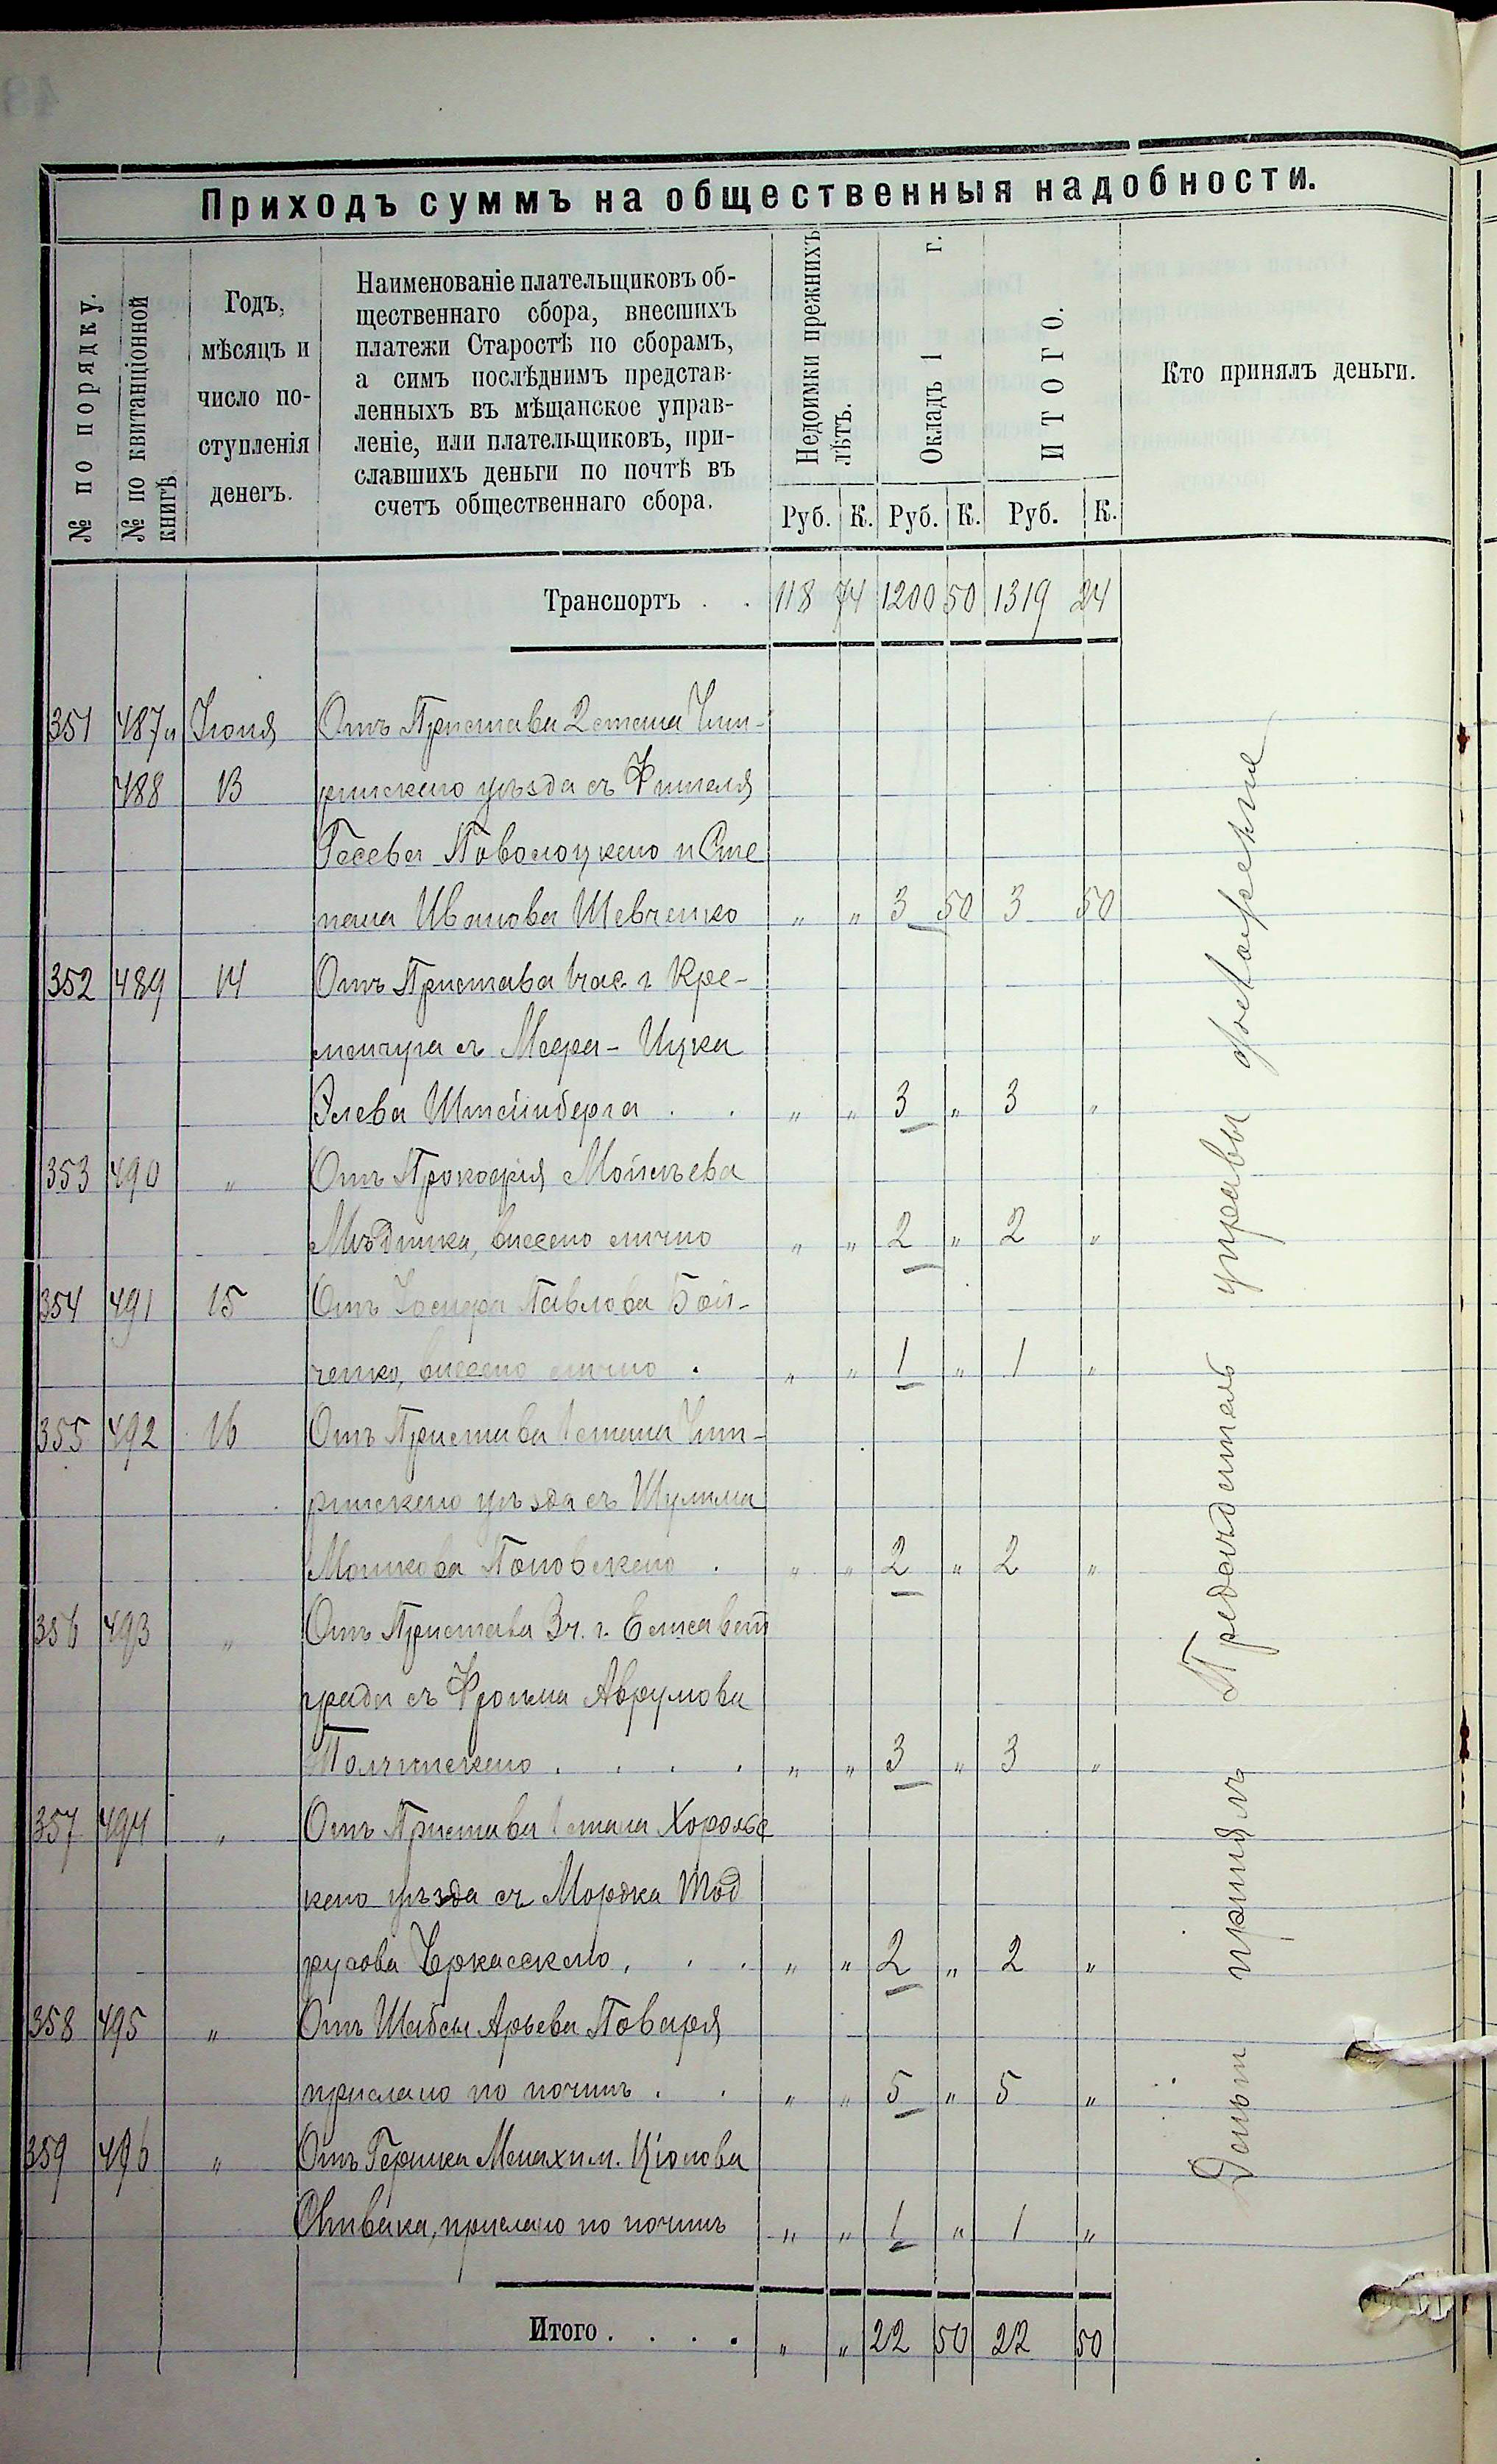 Приходъ суммъ на общественныя надобности.
№ по порядку.
№ по квитанціонной
книгѣ
Годъ,
мѣсяцъ и
число по-
ступленія
денегъ.
Наименованіе плательщиковъ об-
щественнаго сбора, внесшихъ
платежи Старостѣ по сборамъ,
а симъ послѣднимъ представ-
ленныхъ въ мѣщанское управ-
леніе, или плательщиковъ, при-
славшихъ деньги по почтѣ въ
счетъ общественнаго сбора.
Недоимки прежнихъ
лѣтъ.
Окладъ 1 г.
ИТОГО.
Кто принялъ деньги.
Руб. К. Руб. К. Руб. К.
Транспортъ . . 118 74 1200 50 1319 24
351 487 и Іюня Отъ Пристава 2 стана Чиги-
488 13 ринскаго уѣзда съ Фишеля
Госева Поволоцкаго и Сте
пана Иванова Шевченко „ „ 3 50 3 50
352 489 14 Отъ Пристава 1 час. г. Кре-
менчуга съ Меера-Ицка
Элева Штейнберга . . „ „ 3 „ 3 „
353 490 „ Отъ Прокофія Мойсѣева
Мѣдника, внесено лично „ „ 2 „ 2 „
354 491 15 Отъ Іосифа Павлова Бой-
ченко, внесено лично . „ „ 1 „ 1 „
355 492 16 Отъ Пристава 1 стана Чиги-
ринскаго уѣзда съ Шулима
Мошкова Поповскаго . „ „ 2 „ 2 „
356 493 „ Отъ Пристава 3 ч. г. Елисавет
града съ Фроима Аврумова
Толчинскаго . . . . „ „ 3 „ 3 „
357 494 „ Отъ Пристава 1 стана Хорольс
каго уѣзда съ Мордка Тод
русова Черкасскаго . . . „ „ 2 „ 2 „
358 495 „ Отъ Шабсы Арьева Поваря
прислано по почтѣ . . „ „ 5 „ 5 „
359 496 „ Отъ Гершка Менахим. Ціонова
Спивака, прислано по почтѣ „ „ 1 „ 1 „
Итого . . . . „ „ 22 50 22 50
принялъ Предсѣдатель управы